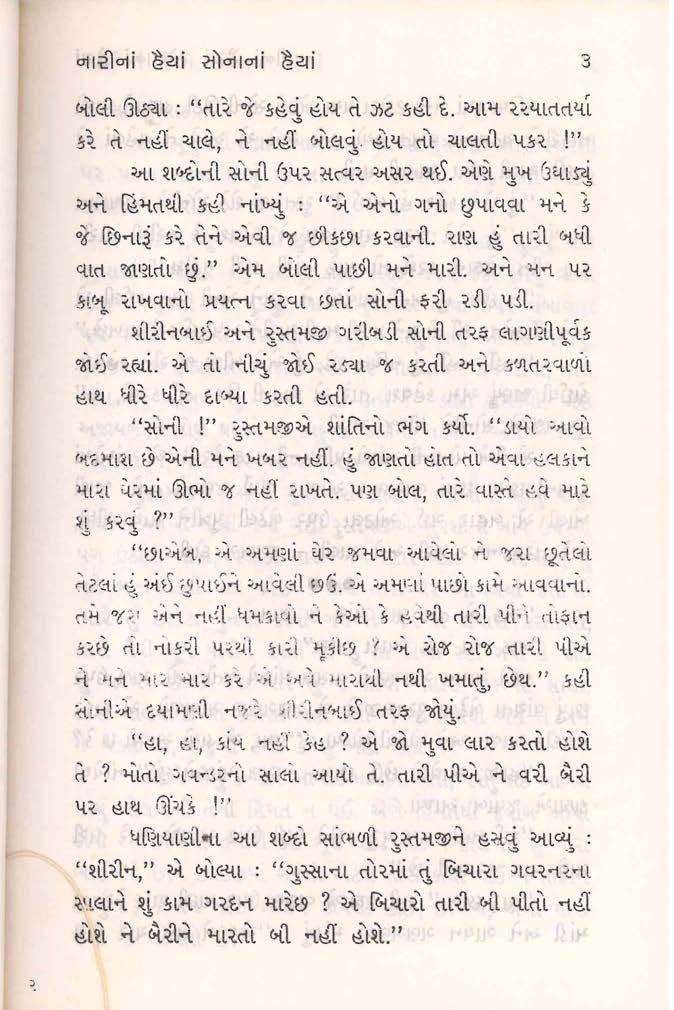 નારીનાં હૈયાં સોનાનાં હૈયાં
૩
બોલી ઊઠ્યા : “તારે જે કહેવું હોય તે ઝટ કહી દે. આમ રરયાતતર્યા
કરે તે નહીં ચાલે, ને નહીં બોલવું હોય તો ચાલતી પકર !”
આ શબ્દોની સોની ઉપર સત્વર અસર થઈ. એણે મુખ ઉઘાડ્યું
અને હિમતથી કહી નાંખ્યું : “એ એનો ગનો છુપાવવા મને કે
જે છિનારૂં કરે તેને એવી જ છીકછા કરવાની. રાણ હું તારી બધી
વાત જાણતો છું.” એમ બોલી પાછી મને મારી. અને મન પર
કાબૂ રાખવાનો પ્રયત્ન કરવા છતાં સોની ફરી રડી પડી.
શીરીનબાઈ અને રુસ્તમજી ગરીબડી સોની તરફ લાગણીપૂર્વક
જોઈ રહ્યાં. એ તો નીચું જોઈ રડ્યા જ કરતી અને કળતરવાળો
હાથ ધીરે ધીરે દાબ્યા કરતી હતી.
“સોની !” રુસ્તમજીએ શાંતિનો ભંગ કર્યો. “ડાયો આવો
બદમાશ છે એની મને ખબર નહીં. હું જાણતો હોત તો એવા હલકાને
મારા ઘેરમાં ઊભો જ નહીં રાખતે. પણ બોલ, તારે વાસ્તે હવે મારે
શું કરવું ?”
“છાએબ, એ અમણાં ઘેર જમવા આવેલો ને જરા છૂતેલો
તેટલાં હું અંઈ છુપાઈને આવેલી છઉં. એ અમણાં પાછો કામે આવવાનો.
તમે જરા એને નહીં ધમકાવો ને કેઓ કે હવેથી તારી પીને તોફાન
કરછે તો નોકરી પરથી કારી મૂકીછ ? એ રોજ રોજ તારી પીએ
ને મને માર માર કરે એ અવે મારાથી નથી ખમાતું, છેથ.” કહી
સોનીએ દયામણી નજરે શીરીનબાઈ તરફ જોયું.
“હા, હા, કાંય નહીં કેહ ? એ જો મુવા લાર કરતો હોશે
તે ? મોતો ગવન્ડરનો સાલો આયો તે. તારી પીએ ને વરી બૈરી
પર હાથ ઊંચકે !”
ધણિયાણીના આ શબ્દો સાંભળી રુસ્તમજીને હસવું આવ્યું :
“શીરીન,” એ બોલ્યા : “ગુસ્સાના તોરમાં તું બિચારા ગવરનરના
સાલાને શું કામ ગરદન મારેછ ? એ બિચારો તારી બી પીતો નહીં
હોશે ને બૈરીને મારતો બી નહીં હોશે.”
૨